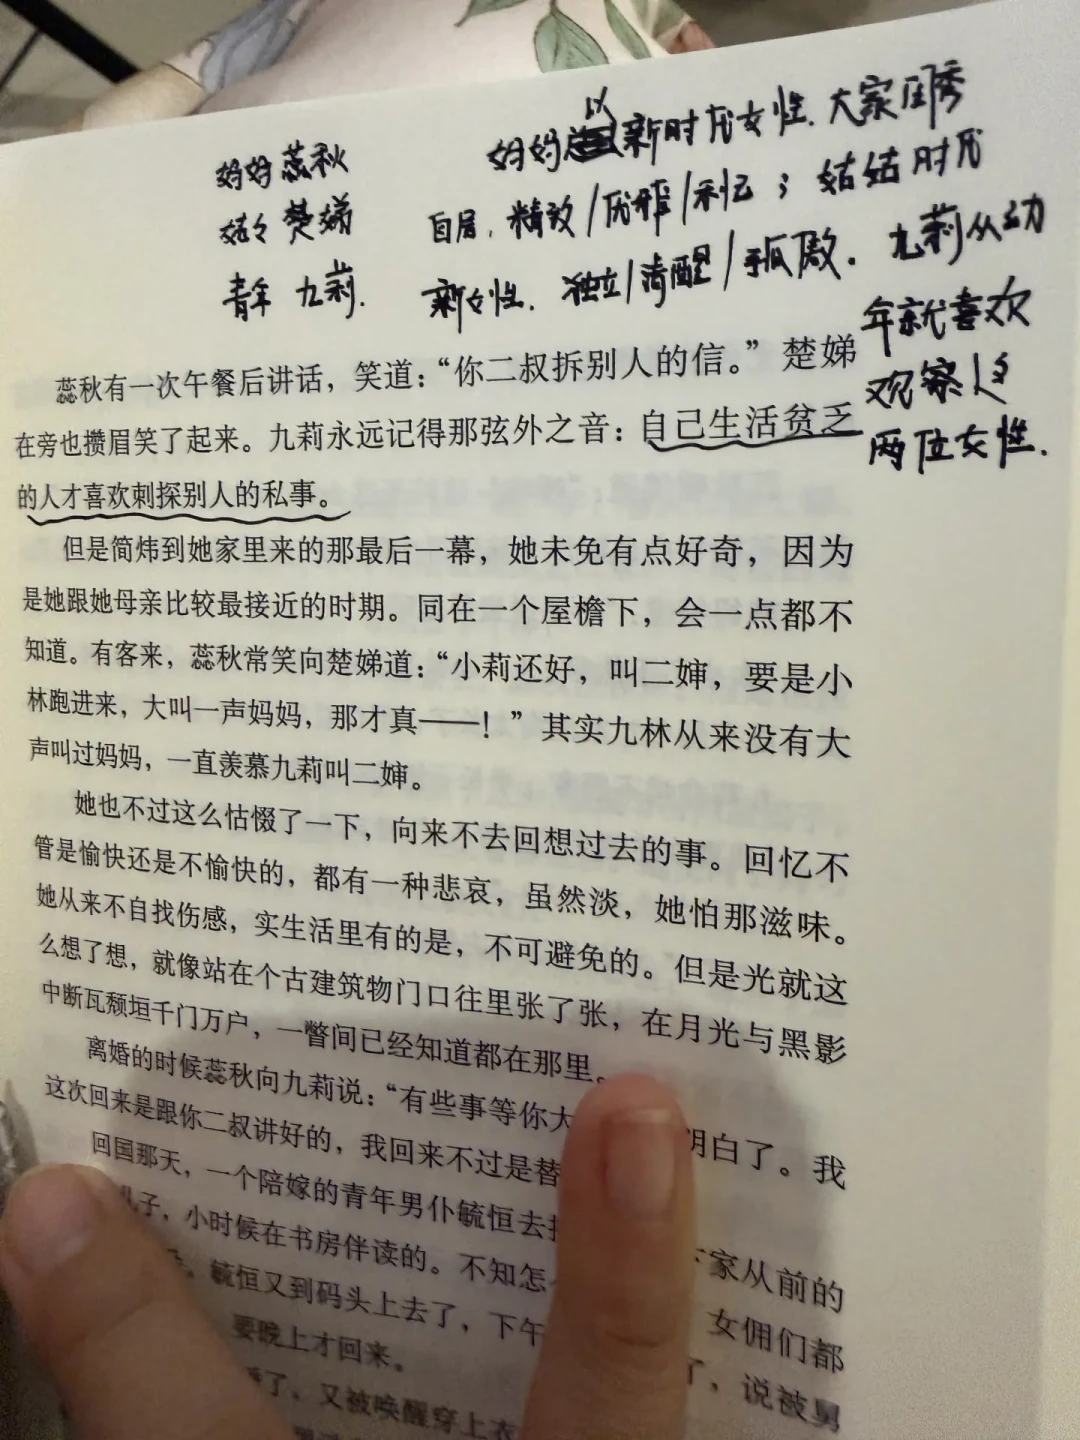 妈妈蕊秋
姑姑楚娣
青年 九莉.
妈妈以新时代女性.大家闺秀
自居,精致/优雅/利己；姑姑时代
新女性.独立/清醒/孤傲.九莉从幼
年就喜欢
观察人家
两位女性.
蕊秋有一次午餐后讲话，笑道：“你二叔拆别人的信。”楚娣
在旁也攒眉笑了起来。九莉永远记得那弦外之音：自己生活贫乏
的人才喜欢刺探别人的私事。
但是简炜到她家里来的那最后一幕，她未免有点好奇，因为
是她跟她母亲比较最接近的时期。同在一个屋檐下，会一点都不
知道。有客来，蕊秋常笑向楚娣道：“小莉还好，叫二婶，要是小
林跑进来，大叫一声妈妈，那才真——！”其实九林从来没有大
声叫过妈妈，一直羡慕九莉叫二婶。
她也不过这么怙惙了一下，向来不去回想过去的事。回忆不
管是愉快还是不愉快的，都有一种悲哀，虽然淡，她怕那滋味。
她从来不自找伤感，实生活里有的是，不可避免的。但是光就这
么想了想，就像站在个古建筑物门口往里张了张，在月光与黑影
中断瓦颓垣千门万户，一瞥间已经知道都在那里。
离婚的时候蕊秋向九莉说：“有些事等你大 明白了。我
这次回来是跟你二叔讲好的，我回来不过是替
回国那天，一个陪嫁的青年男仆毓恒去 家从前的
儿子，小时候在书房伴读的。不知怎 女佣们都
毓恒又到码头上去了，下午 了，说被舅
要晚上才回来。
了，又被唤醒穿上衣